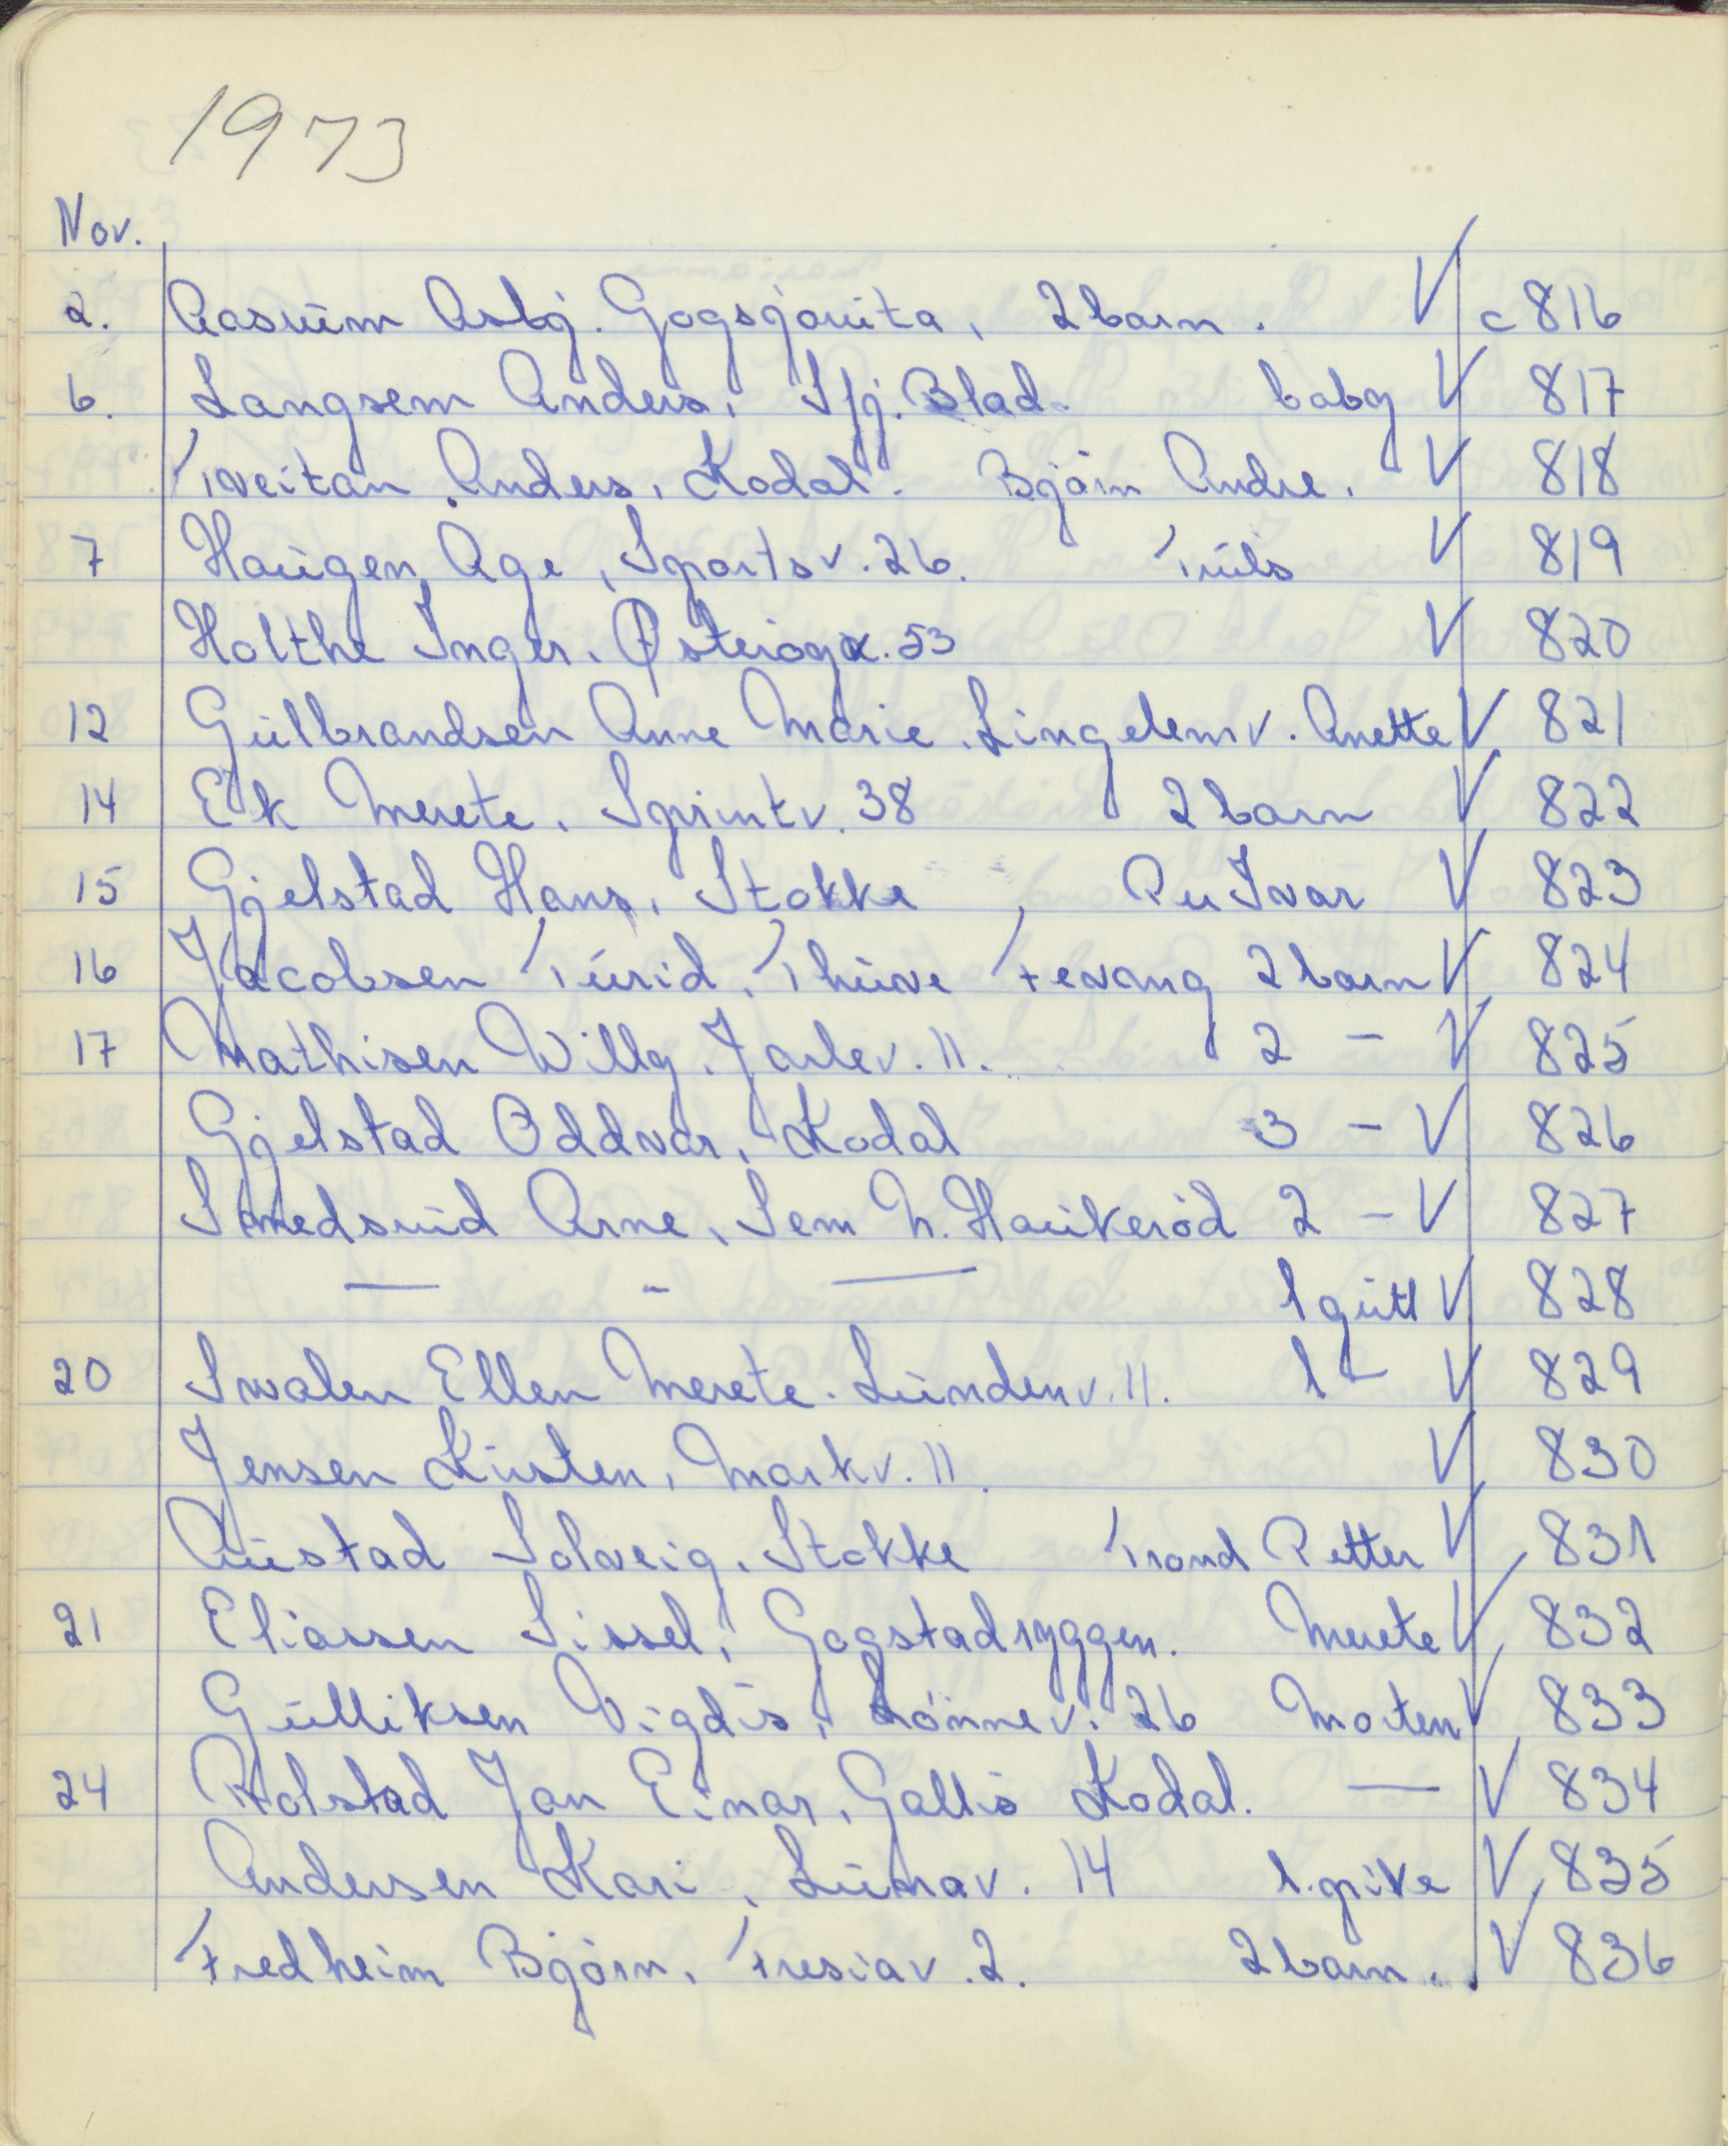 1973
Nov.
2. Aasrum Asbj. Gogsjøruta, 2 barn. V c 816
6. Langsem Anders, Sfj. Blad. baby V 817
Tveitan Anders, Kodal. Bjørn Andre. V 818
7 Haugen Åge, Sportsv. 26. Truls V 819
Holthe Inger. Østerøya. 53 V 820
12 Gulbrandsen Anne Marie. Lingelemv. Anette V 821
14 Ek Merete. Sprintv. 38 2 barn V 822
15 Gjelstad Hans, Stokke Per Ivar V 823
16 Jacobsen Turid, Thuve Fevang 2 barn V 824
17 Mathisen Willy. Jarlev. 11. 2 – V 825
Gjelstad Oddvar, Kodal 3 – V 826
Smedsrud Arne, Sem N. Haukerød 2 – V 827
— - — 1 gutt V 828
20 Svalen Ellen Merete. Lundenv. 11. 1 – V 829
Jensen Kirsten, Markv. 11. V 830
Austad Solveig, Stokke Trond Petter V 831
21 Eliassen Sissel, Gogstadryggen. Merete V 832
Gulliksen Vigdis, Lønnev. 26 Morten V 833
24 Rolstad Jan Einar, Gallis Kodal. — V 834
Andersen Kari, Lunav. 14 1. pike V 835
Fredheim Bjørn, Fresiav. 2. 2 barn. V 836